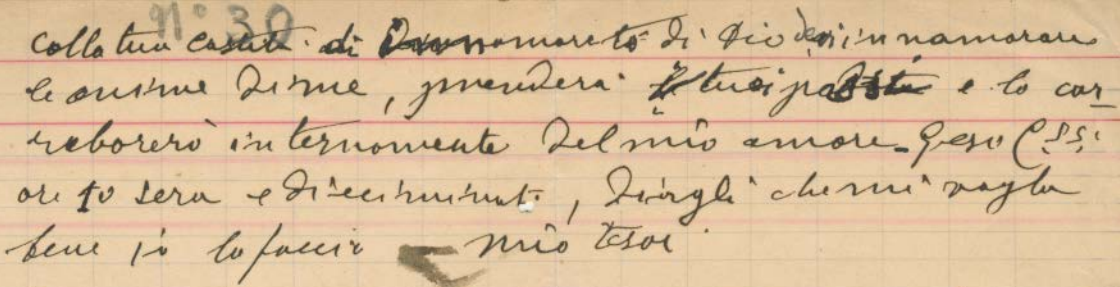 n° 30
colla tua castità di innamorato di Dio devi innamorare
le anime di me, prenderà i tuoi e lo cor-
roborerò internamente del mio amore - Gesù (
ore 10 sera e dieci minuti, digli che mi voglia
bene io lo faccio mio tesor